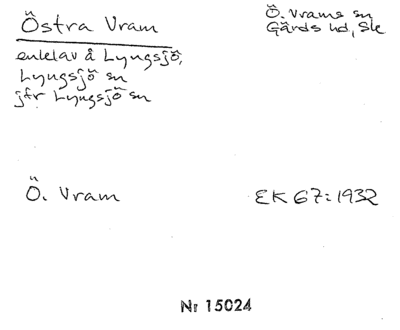 Östra Vram
Ö. Vrams sn
Gärds hd, Sk
enklav å Lyngsjö,
Lyngsjö sn
jfr Lyngsjö sn
Ö. Vram
EK 67:1932
Nr 15024